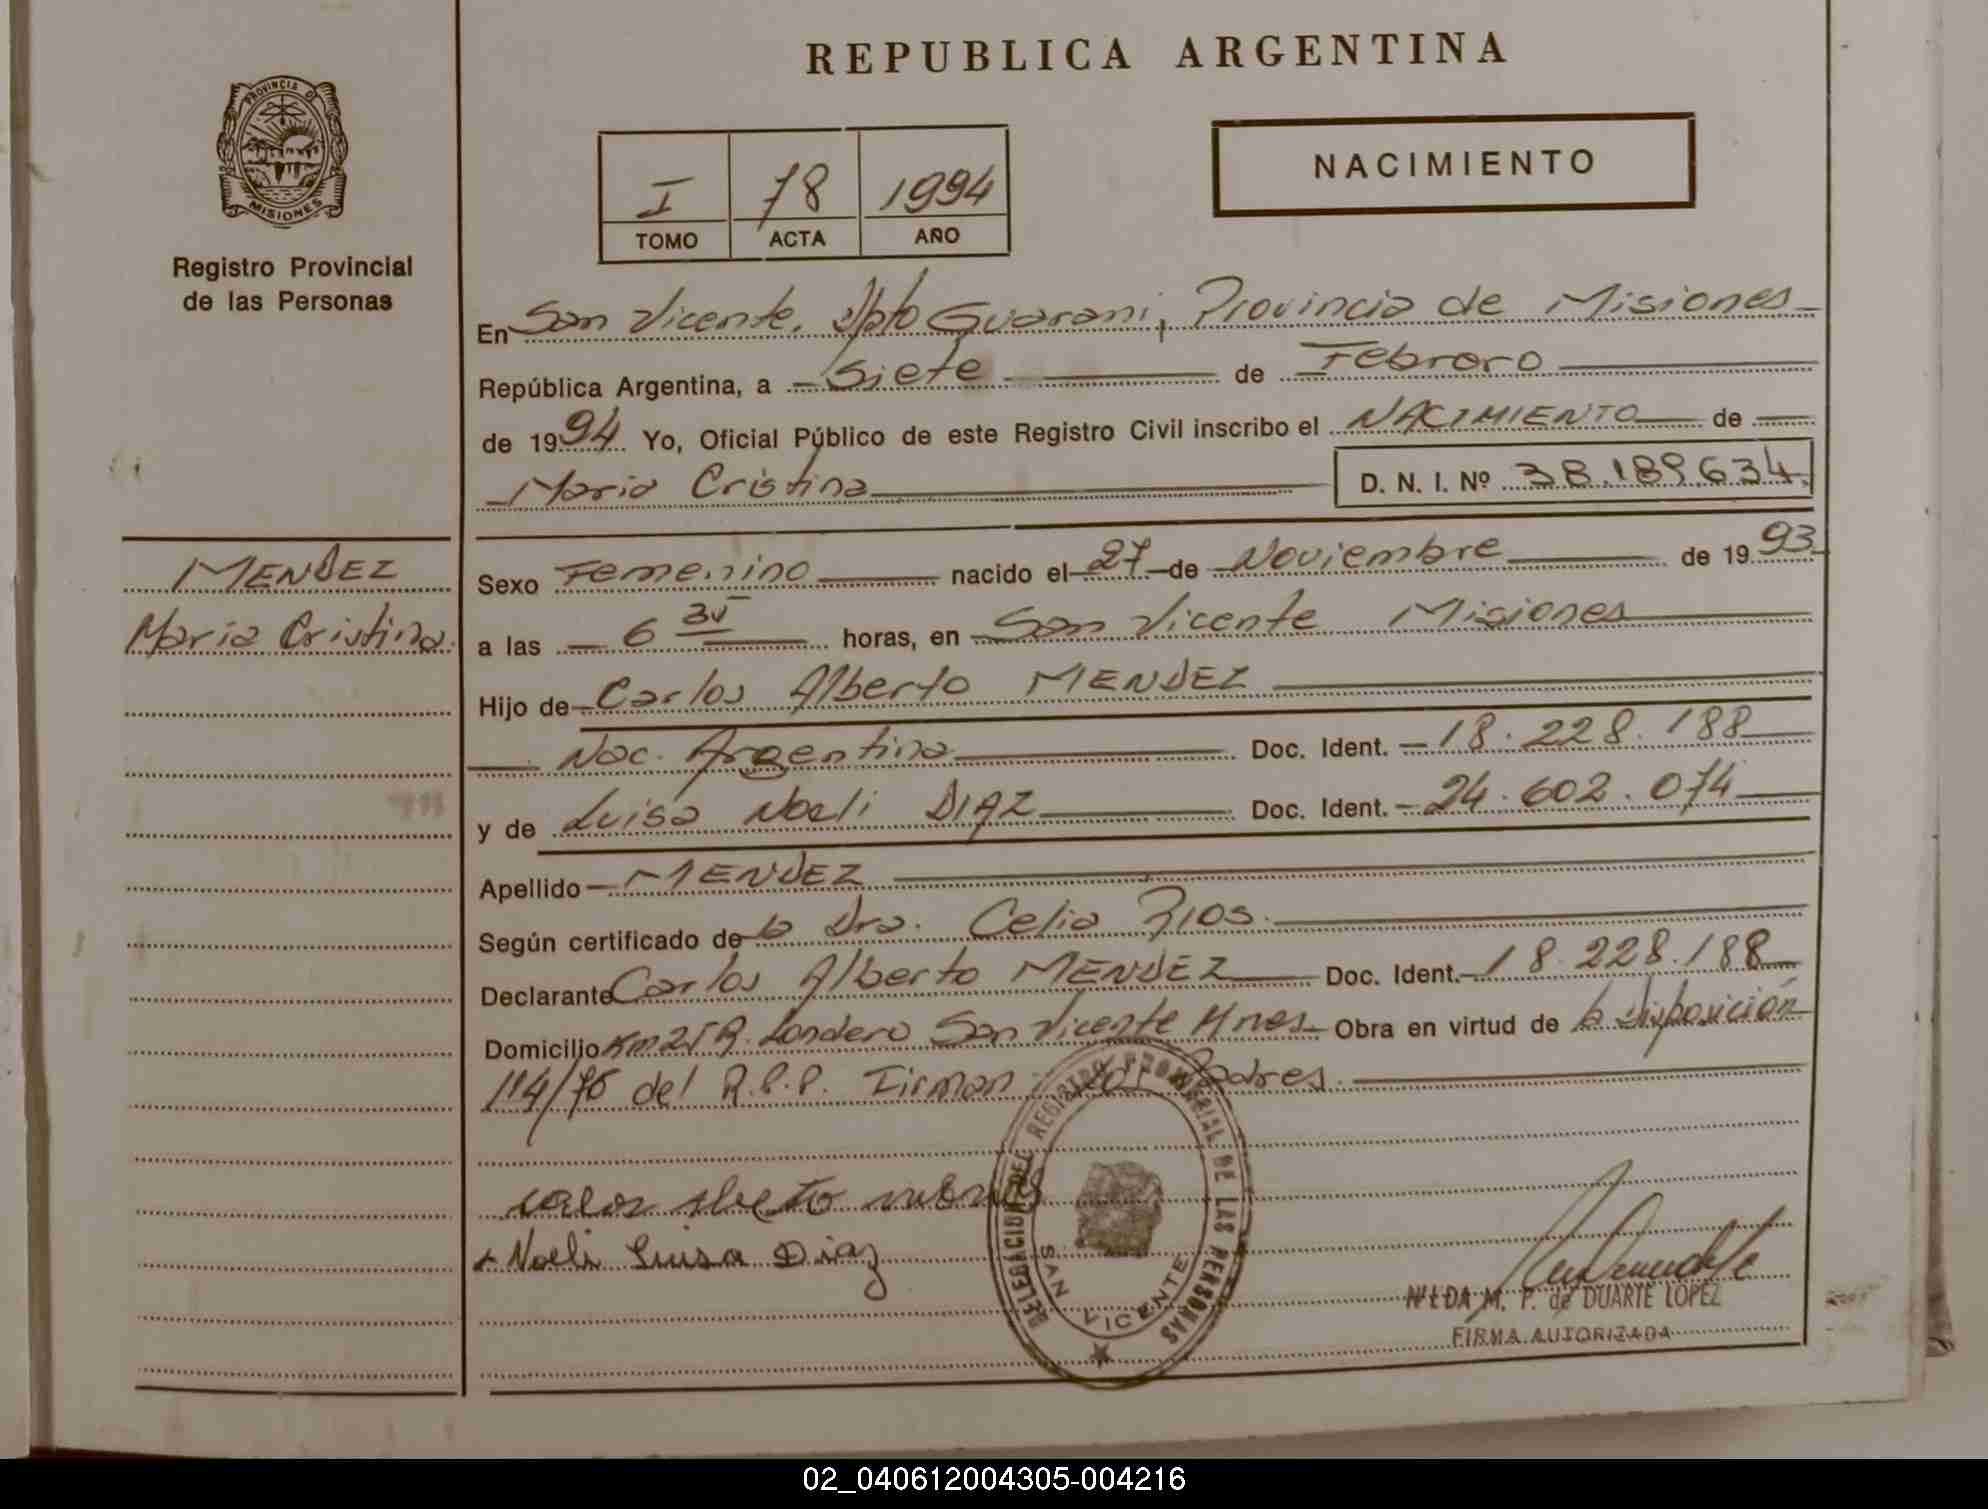 REPUBLICA ARGENTINA
PROVINCIA DE
MISIONES
Registro Provincial
de las Personas
I 78 1994
TOMO ACTA AÑO
NACIMIENTO
En San Vicente, Dpto Guarani, Provincia de Misiones
República Argentina, a Siete de Febrero
de 1994 Yo, Oficial Público de este Registro Civil inscribo el NACIMIENTO de
Maria Cristina D. N. I. Nº 38.189.634
MENDEZ
Maria Cristina
Sexo Femenino nacido el 27 de Noviembre de 1993
a las 6 35 horas, en San Vicente Misiones
Hijo de Carlos Alberto MENDEZ
Nac. Argentina Doc. Ident. 18.228.188
y de Luisa Noeli DIAZ Doc. Ident. 24.602.074
Apellido MENDEZ
Según certificado de la Dra. Celia Rios.
Declarante Carlos Alberto MENDEZ Doc. Ident. 18.228.188
Domicilio Km 25 R. Londero San Vicente Mnes Obra en virtud de la Disposición
114/76 del R.P.P. Firman los Padres.
Noeli Luisa Diaz
DELEGACION DEL REGISTRO PROVINCIAL DE LAS PERSONAS
SAN VICENTE
NILDA M. P. de DUARTE LOPEZ
FIRMA AUTORIZADA
02_040612004305-004216